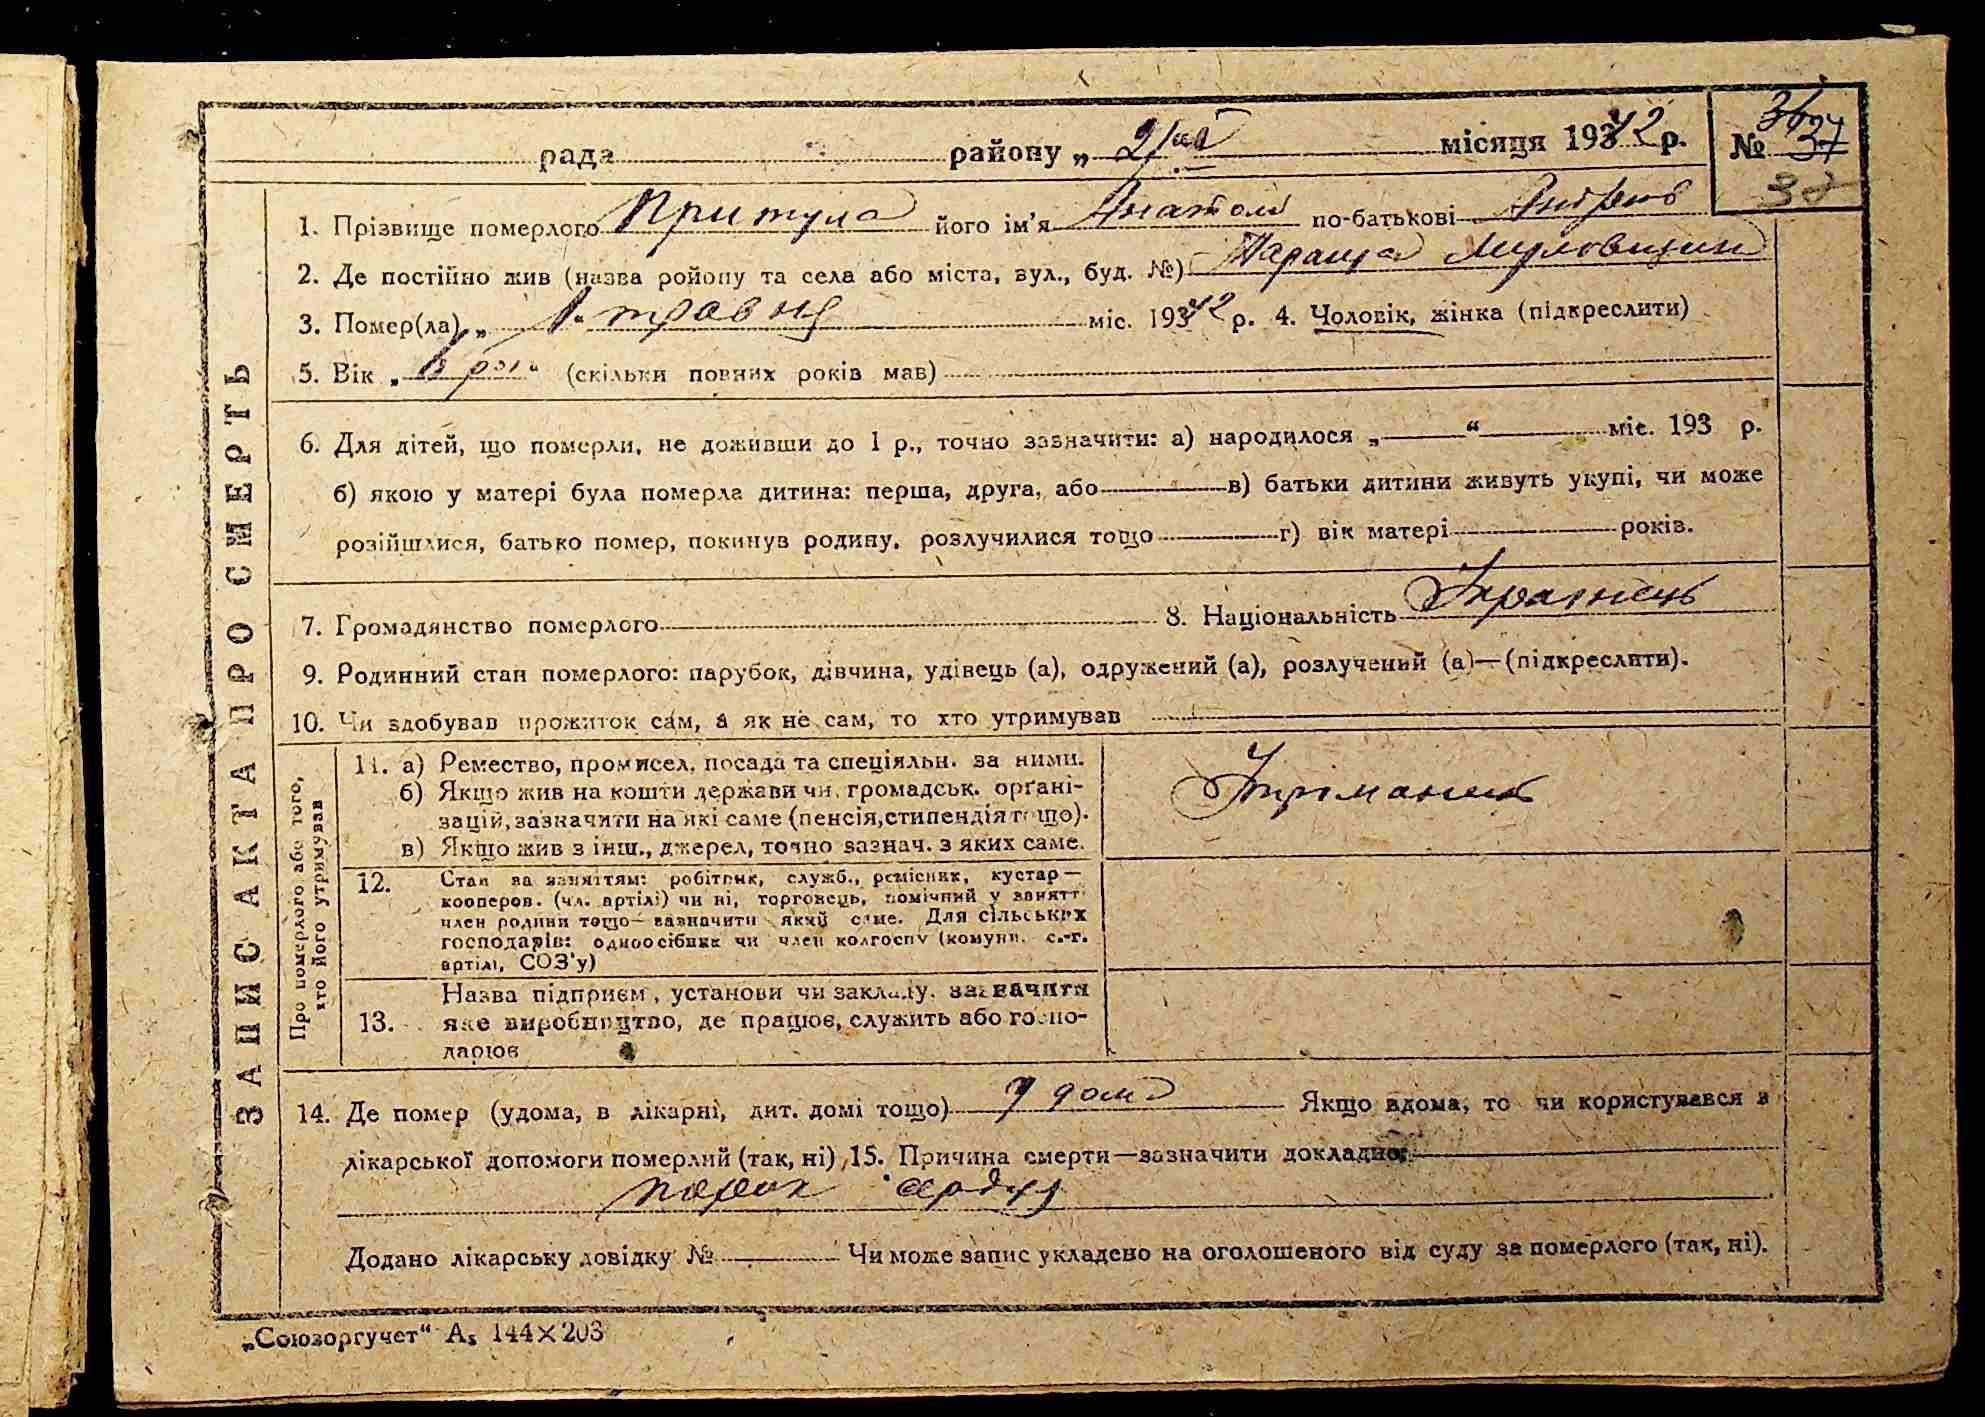 рада района „ 2/ місяця 19342 р.
№ 36 37
37
1. Прізвище померлого Притула його ім'я Анатолі по-батькові Андрієв
2. Де постійно жив (назва ройону та села або міста, вул., буд. №) Тараща
3. Помер(ла) „ 1 " травня міс. 19342 р. 4. Чоловік, жінка (підкреслити)
5. Вік „ " (скільки повних років мав)
6. Для дітей, що померли, не доживши до 1 р., точно зазначити: а) народилося „ “ міс. 193 р.
б) якою у матері була померла дитина: перша, друга, або в) батьки дитини живуть укупі, чи може
розійшлися, батько помер, покинув родину, розлучилися тощо г) вік матері років.
7. Громадянство померлого 8. Національність Українець
9. Родинний стан померлого: парубок, дівчина, удівець (а), одружений (а), розлучений (а)—(підкреслити).
10. Чи здобував прожиток сам, а як не сам, то хто утримував
ЗАПИС АКТА ПРО СМЕРТЬ
Про померлого або того,
хто його утримував
11. а) Ремество, промисел, посада та спеціяльн. за ними.
б) Якщо жив на кошти держави чи громадськ. орґані-
зацій, зазначити на які саме (пенсія, стипендія тощо).
в) Якщо жив з інш., джерел, точно зазнач. з яких саме.
Утріманець
12. Стан за заняттям: робітник, служб., ремісник, кустар—
кооперов. (чл. артілі) чи ні, торговець, помічний у занятт
член родини тощо—зазначити який саме. Для сільських
господарів: одноосібник чи член колгоспу (комуни, с.-г.
артілі, СОЗ'у)
13. Назва підприєм, установи чи закладу, зазначити
яке виробництво, де працює, служить або госпо-
дарює
14. Де помер (удома, в лікарні, дит. домі тощо) У дома Якщо вдома, то чи користувався в
лікарської допомоги померлий (так, ні) 15. Причина смерти—зазначити докладно:
порок сердця
Додано лікарську довідку № Чи може запис укладено на оголошеного від суду за померлого (так, ні).
„Союзоргучет“ А₅ 144×203